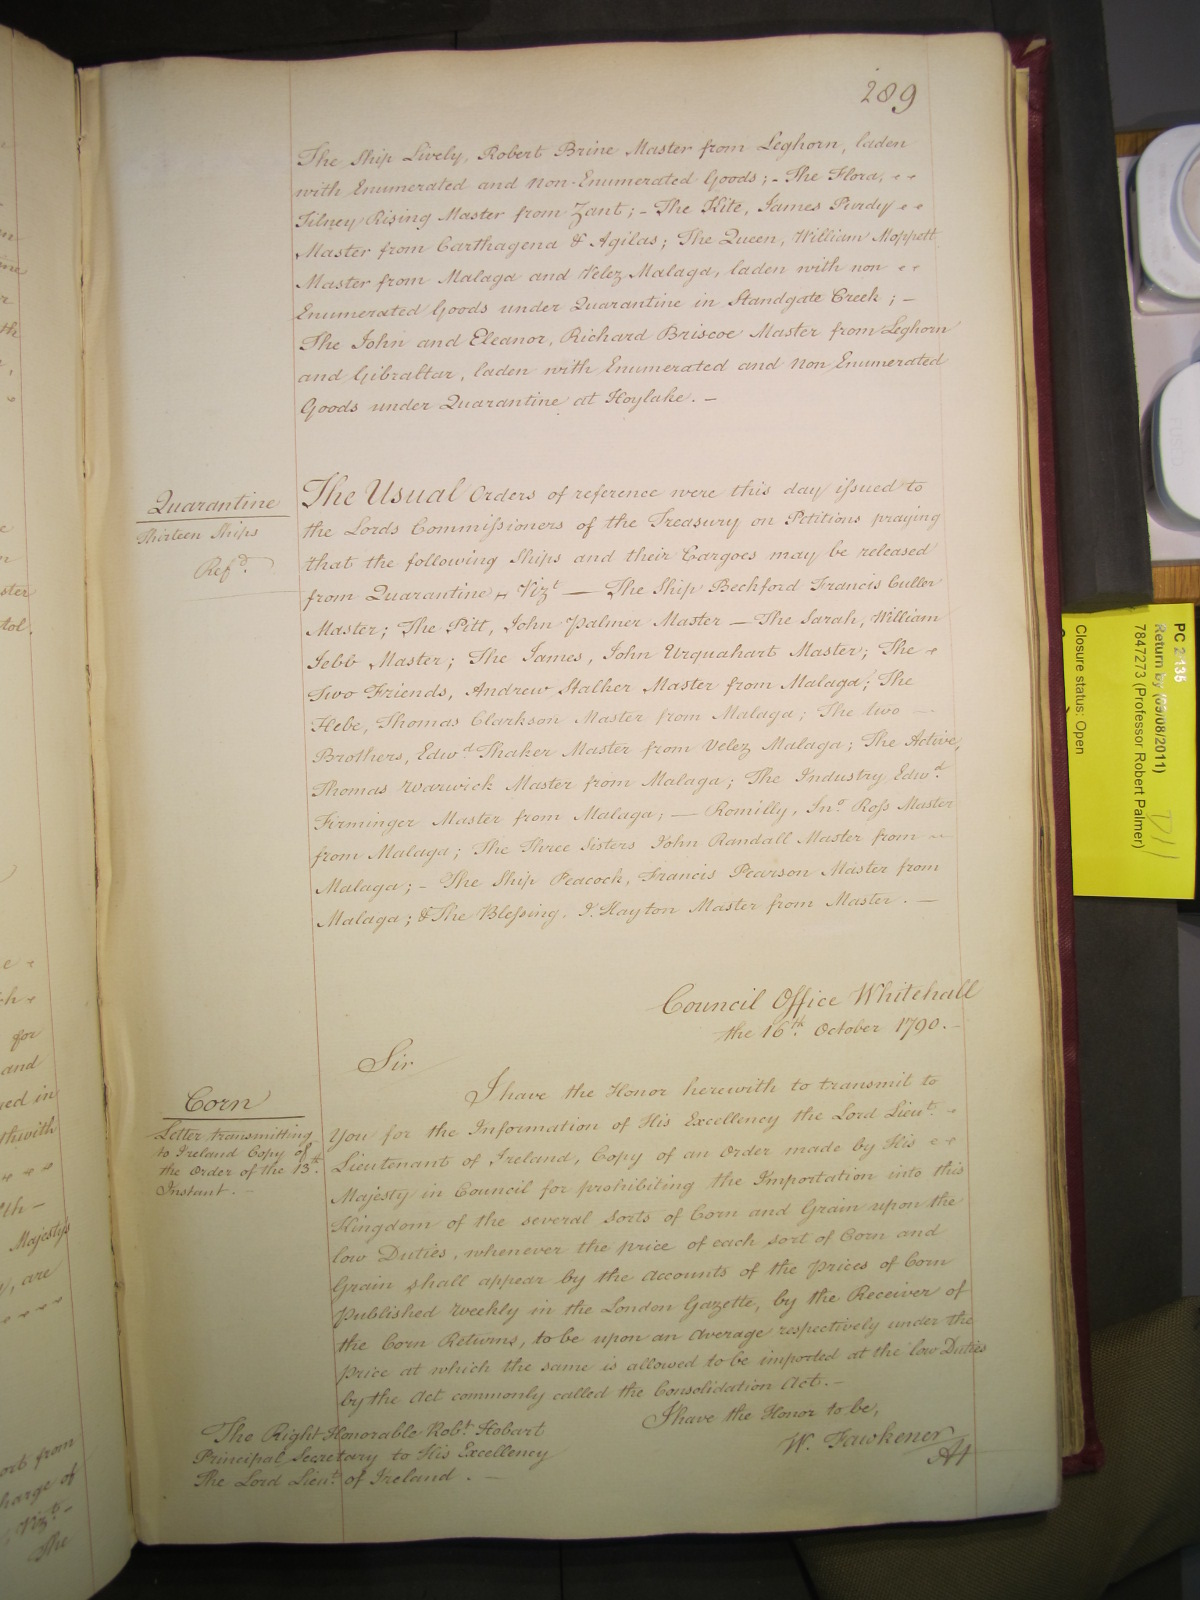 289
The Ship Lively, Robert Brine Master from Leghorn, laden
with Enumerated and Non-Enumerated Goods; - The Flora,
Tilney Rising Master from Zant; - The Kite, James Purdy
Master from Carthagena & Agilas; The Queen, William Moppett
Master from Malaga and Velez Malaga, laden with non
Enumerated Goods under Quarantine in Standgate Creek; -
The John and Eleanor, Richard Briscoe Master from Leghorn
and Gibraltar, laden with Enumerated and Non Enumerated
Goods under Quarantine at Hoylake. -
Quarantine
Thirteen Ships
Refd.
The Usual Orders of reference were this day issued to
the Lords Commissioners of the Treasury on Petitions praying
that the following Ships and their Cargoes may be released
from Quarantine, Vizt — The Ship Beckford Francis Culler
Master; The Pitt, John Palmer Master — The Sarah, William
Jebb Master; The James, John Urquahart Master; The
Two Friends, Andrew Stalker Master from Malaga; The
Hebe, Thomas Clarkson Master from Malaga; The two
Brothers, Edwd. Thaker Master from Velez Malaga; The Active,
Thomas Warwick Master from Malaga; The Industry Edwd.
Firminger Master from Malaga; — Romilly, Jno. Ross Master
from Malaga; The Three Sisters John Randall Master from
Malaga; - The Ship Peacock, Francis Pearson Master from
Malaga; & The Blessing, J. Hayton Master from Master. —
Council Office Whitehall
the 16th. October 1790. -
Sir
Corn
Letter transmitting
to Ireland Copy of
the Order of the 13th.
Instant. -
I have the Honor herewith to transmit to
You for the Information of His Excellency the Lord Lieut.
Lieutenant of Ireland, Copy of an Order made by His
Majesty in Council for prohibiting the Importation into this
Kingdom of the several Sorts of Corn and Grain upon the
low Duties, whenever the price of each sort of Corn and
Grain shall appear by the Accounts of the Prices of Corn
Published Weekly in the London Gazette, by the Receiver of
the Corn Returns, to be upon an Average respectively under the
Price at which the same is allowed to be imported at the low Duties
by the Act commonly called the Consolidation Act. -
I have the Honor to be,
W. Fawkener
The Right Honorable Robt. Hobart
Principal Secretary to His Excellency
The Lord Lieut. of Ireland. -
PC 2/135
Return by (09/08/2011)
7847273 (Professor Robert Palmer)
Closure status: Open